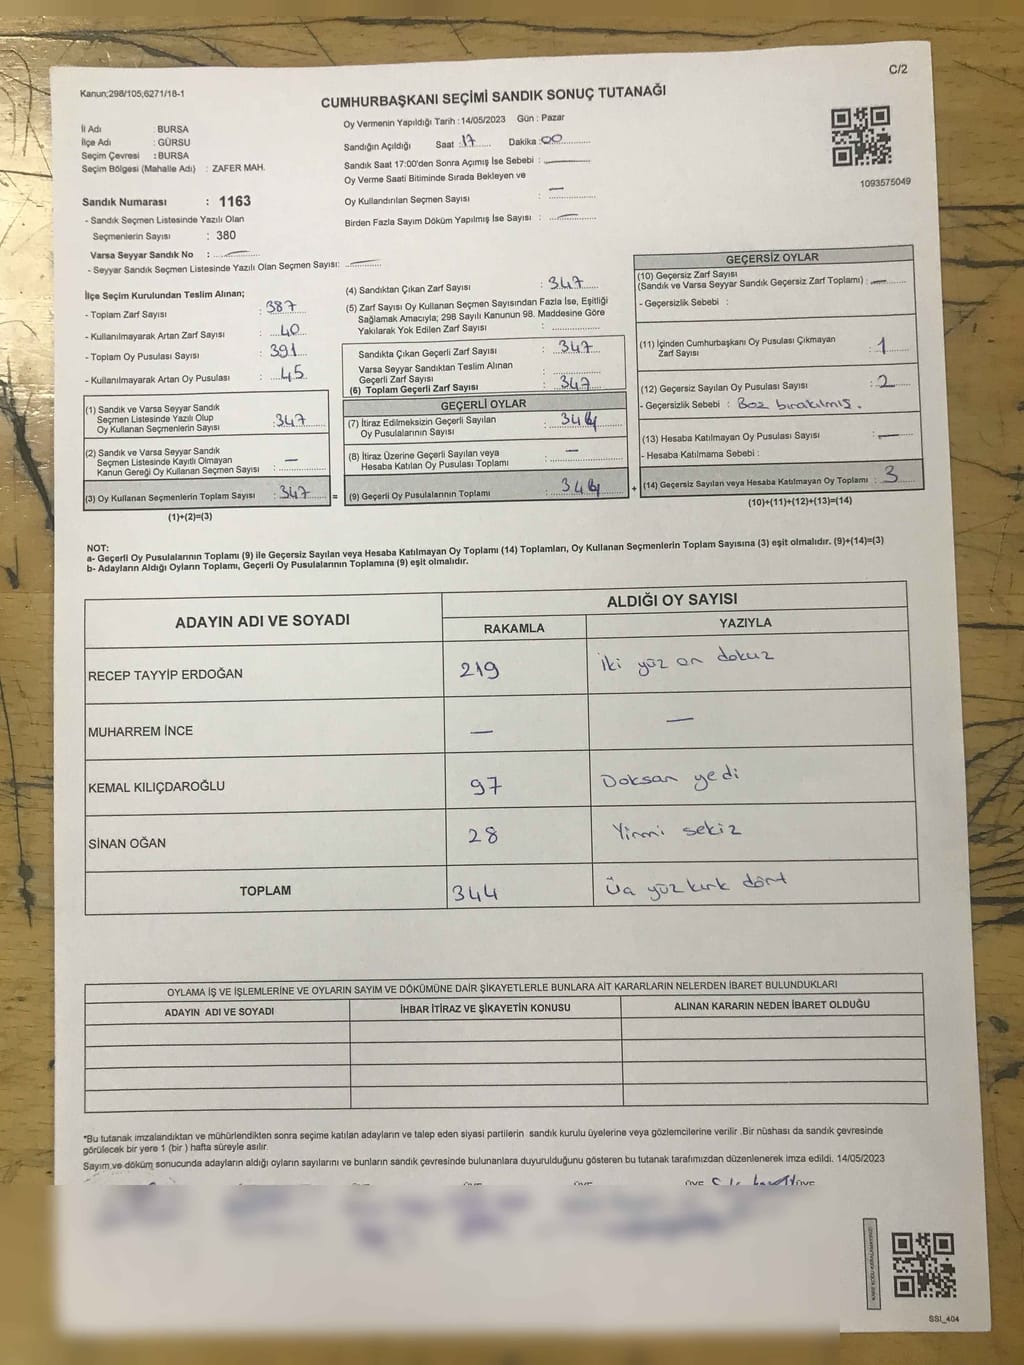 C/2
Kanun;298/105;6271/18-1
CUMHURBAŞKANI SEÇİMİ SANDIK SONUÇ TUTANAĞI
İl Adı : BURSA
İlçe Adı : GÜRSU
Seçim Çevresi : BURSA
Seçim Bölgesi (Mahalle Adı) : ZAFER MAH.
Oy Vermenin Yapıldığı Tarih : 14/05/2023 Gün : Pazar
Sandığın Açıldığı Saat : 17 Dakika : 00
Sandık Saat 17:00'den Sonra Açımış İse Sebebi : —
Oy Verme Saati Bitiminde Sırada Bekleyen ve
Oy Kullandırılan Seçmen Sayısı : —
Birden Fazla Sayım Döküm Yapılmış İse Sayısı : —
1093575049
Sandık Numarası : 1163
- Sandık Seçmen Listesinde Yazılı Olan
Seçmenlerin Sayısı : 380
Varsa Seyyar Sandık No : —
- Seyyar Sandık Seçmen Listesinde Yazılı Olan Seçmen Sayısı: —
İlçe Seçim Kurulundan Teslim Alınan;
- Toplam Zarf Sayısı : 387
- Kullanılmayarak Artan Zarf Sayısı : 40
- Toplam Oy Pusulası Sayısı : 391
- Kullanılmayarak Artan Oy Pusulası : 45
(1) Sandık ve Varsa Seyyar Sandık
Seçmen Listesinde Yazılı Olup
Oy Kullanan Seçmenlerin Sayısı : 347
(2) Sandık ve Varsa Seyyar Sandık
Seçmen Listesinde Kayıtlı Olmayan
Kanun Gereği Oy Kullanan Seçmen Sayısı : —
(3) Oy Kullanan Seçmenlerin Toplam Sayısı : 347 =
(1)+(2)=(3)
(4) Sandıktan Çıkan Zarf Sayısı : 347
(5) Zarf Sayısı Oy Kullanan Seçmen Sayısından Fazla İse, Eşitliği
Sağlamak Amacıyla; 298 Sayılı Kanunun 98. Maddesine Göre
Yakılarak Yok Edilen Zarf Sayısı :
Sandıkta Çıkan Geçerli Zarf Sayısı : 347
Varsa Seyyar Sandıktan Teslim Alınan
Geçerli Zarf Sayısı :
(6) Toplam Geçerli Zarf Sayısı : 347
GEÇERLİ OYLAR
(7) İtiraz Edilmeksizin Geçerli Sayılan
Oy Pusulalarının Sayısı : 344
(8) İtiraz Üzerine Geçerli Sayılan veya
Hesaba Katılan Oy Pusulası Toplamı : —
(9) Geçerli Oy Pusulalarının Toplamı : 344 +
GEÇERSİZ OYLAR
(10) Geçersiz Zarf Sayısı
(Sandık ve Varsa Seyyar Sandık Geçersiz Zarf Toplamı) : —
- Geçersizlik Sebebi :
(11) İçinden Cumhurbaşkanı Oy Pusulası Çıkmayan
Zarf Sayısı : 1
(12) Geçersiz Sayılan Oy Pusulası Sayısı : 2
- Geçersizlik Sebebi : Boş bırakılmış.
(13) Hesaba Katılmayan Oy Pusulası Sayısı : —
- Hesaba Katılmama Sebebi :
(14) Geçersiz Sayılan veya Hesaba Katılmayan Oy Toplamı : 3
(10)+(11)+(12)+(13)=(14)
NOT:
a- Geçerli Oy Pusulalarının Toplamı (9) ile Geçersiz Sayılan veya Hesaba Katılmayan Oy Toplamı (14) Toplamları, Oy Kullanan Seçmenlerin Toplam Sayısına (3) eşit olmalıdır. (9)+(14)=(3)
b- Adayların Aldığı Oyların Toplamı, Geçerli Oy Pusulalarının Toplamına (9) eşit olmalıdır.
ADAYIN ADI VE SOYADI
ALDIĞI OY SAYISI
RAKAMLA YAZIYLA
RECEP TAYYİP ERDOĞAN 219 İki yüz on dokuz
MUHARREM İNCE — —
KEMAL KILIÇDAROĞLU 97 Doksan yedi
SİNAN OĞAN 28 Yirmi sekiz
TOPLAM 344 Üç yüz kırk dört
OYLAMA İŞ VE İŞLEMLERİNE VE OYLARIN SAYIM VE DÖKÜMÜNE DAİR ŞİKAYETLERLE BUNLARA AİT KARARLARIN NELERDEN İBARET BULUNDUKLARI
ADAYIN ADI VE SOYADI İHBAR İTİRAZ VE ŞİKAYETİN KONUSU ALINAN KARARIN NEDEN İBARET OLDUĞU
*Bu tutanak imzalandıktan ve mühürlendikten sonra seçime katılan adayların ve talep eden siyasi partilerin sandık kurulu üyelerine veya gözlemcilerine verilir .Bir nüshası da sandık çevresinde
görülecek bir yere 1 (bir ) hafta süreyle asılır.
Sayım ve döküm sonucunda adayların aldığı oyların sayılarını ve bunların sandık çevresinde bulunanlara duyurulduğunu gösteren bu tutanak tarafımızdan düzenlenerek imza edildi. 14/05/2023
SSI_404